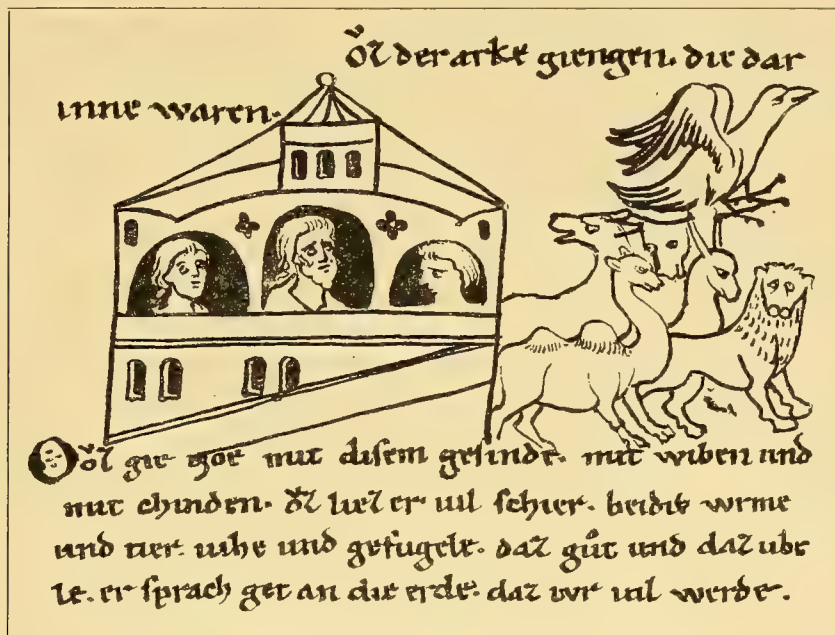 Ůz der arke giengen. die dar
inne waren.
Ůz gie noe mit disem gesinde. mit wiben und
mit chinden. ůz liez er uil schier. beidiv wrme
und tier. uihe und gefugele. daz gůt und daz ube
le. er sprach get an die erde. daz iwr uil werde.